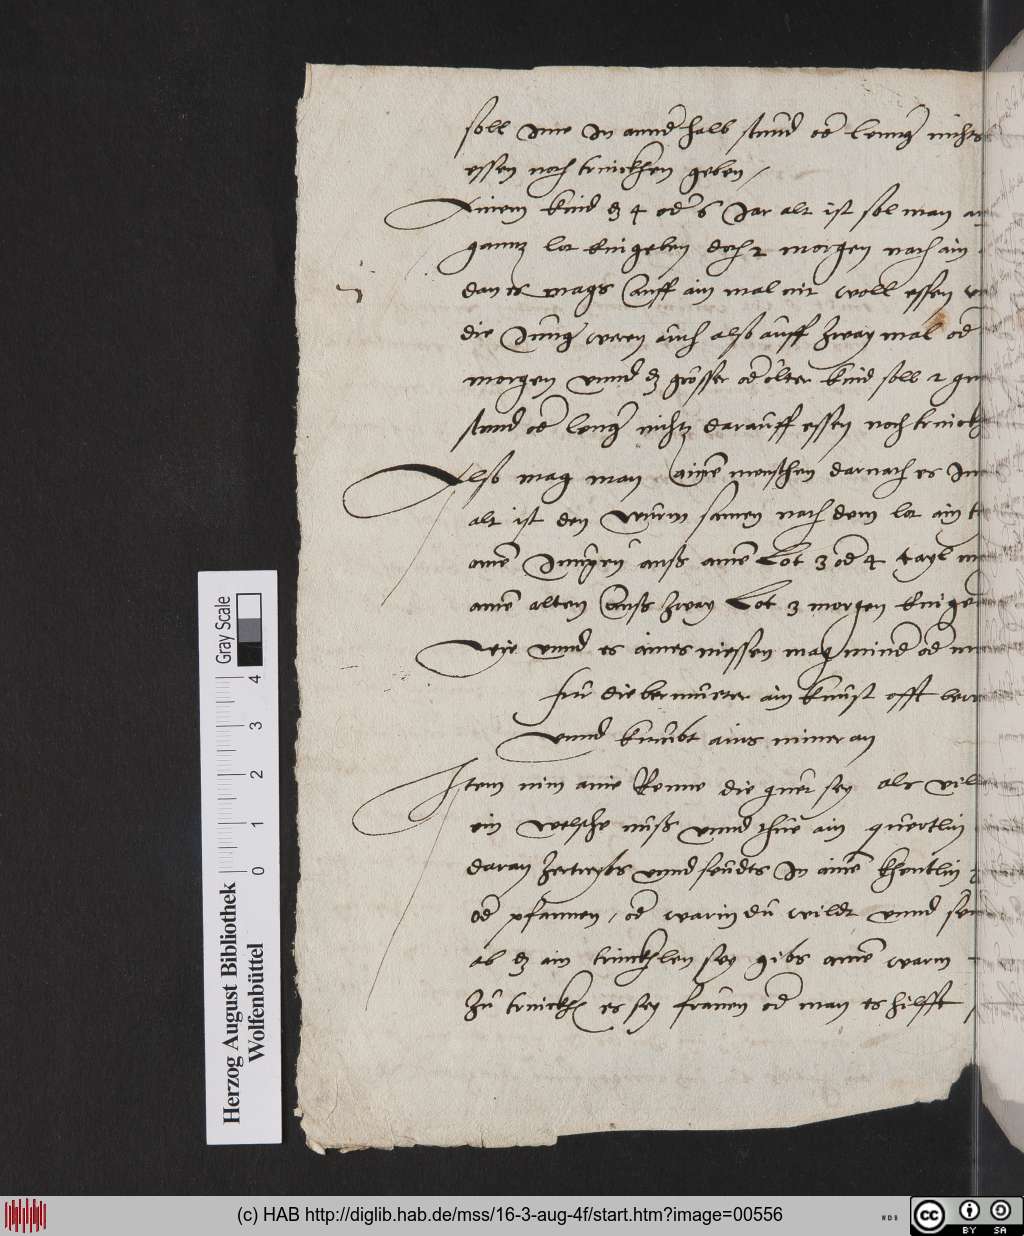 soll Ime In annd halb stund od lenng nichts
essen noch trinckhen geben /
Ainem kind dz 4 od 6 Jar alt ist sol man
gannz lot eingeben doch 2 morgen nach ain
dan es mags auff ain mal nit woll essen
die Jung weren auch also auff zway mal od
morgen vnnd dz grösser od ölter kind soll 2
stund od leng nichtz darauff essen noch
Also mag man ainē menschen darnach es
alt ist den wurm samen nach dem lot ain
ainē Jungen auss ainē Lot 3 od 4 tayl
ainē alten auss zway Lot 3 morgen
Wie vnnd es aines niessen mag mind od
für die bermueter ain kunst offt
vnnd kumbt ains nimer an
Item nim ain die guet sey als vil
ein welsche nuss vnnd thue ain quertlin
daran zertreybs vnnd seudts In ainē
od pfannen / od warin du wildt vnnd
ab dz ain trinckhlen sey gibs ainē warm
zu trinckh es sey frauen od man es hilfft /
Gray Scale
0 1 2 3 4
Herzog August Bibliothek
Wolfenbüttel
(c) HAB http://diglib.hab.de/mss/16-3-aug-4f/start.htm?image=00556
cc BY SA